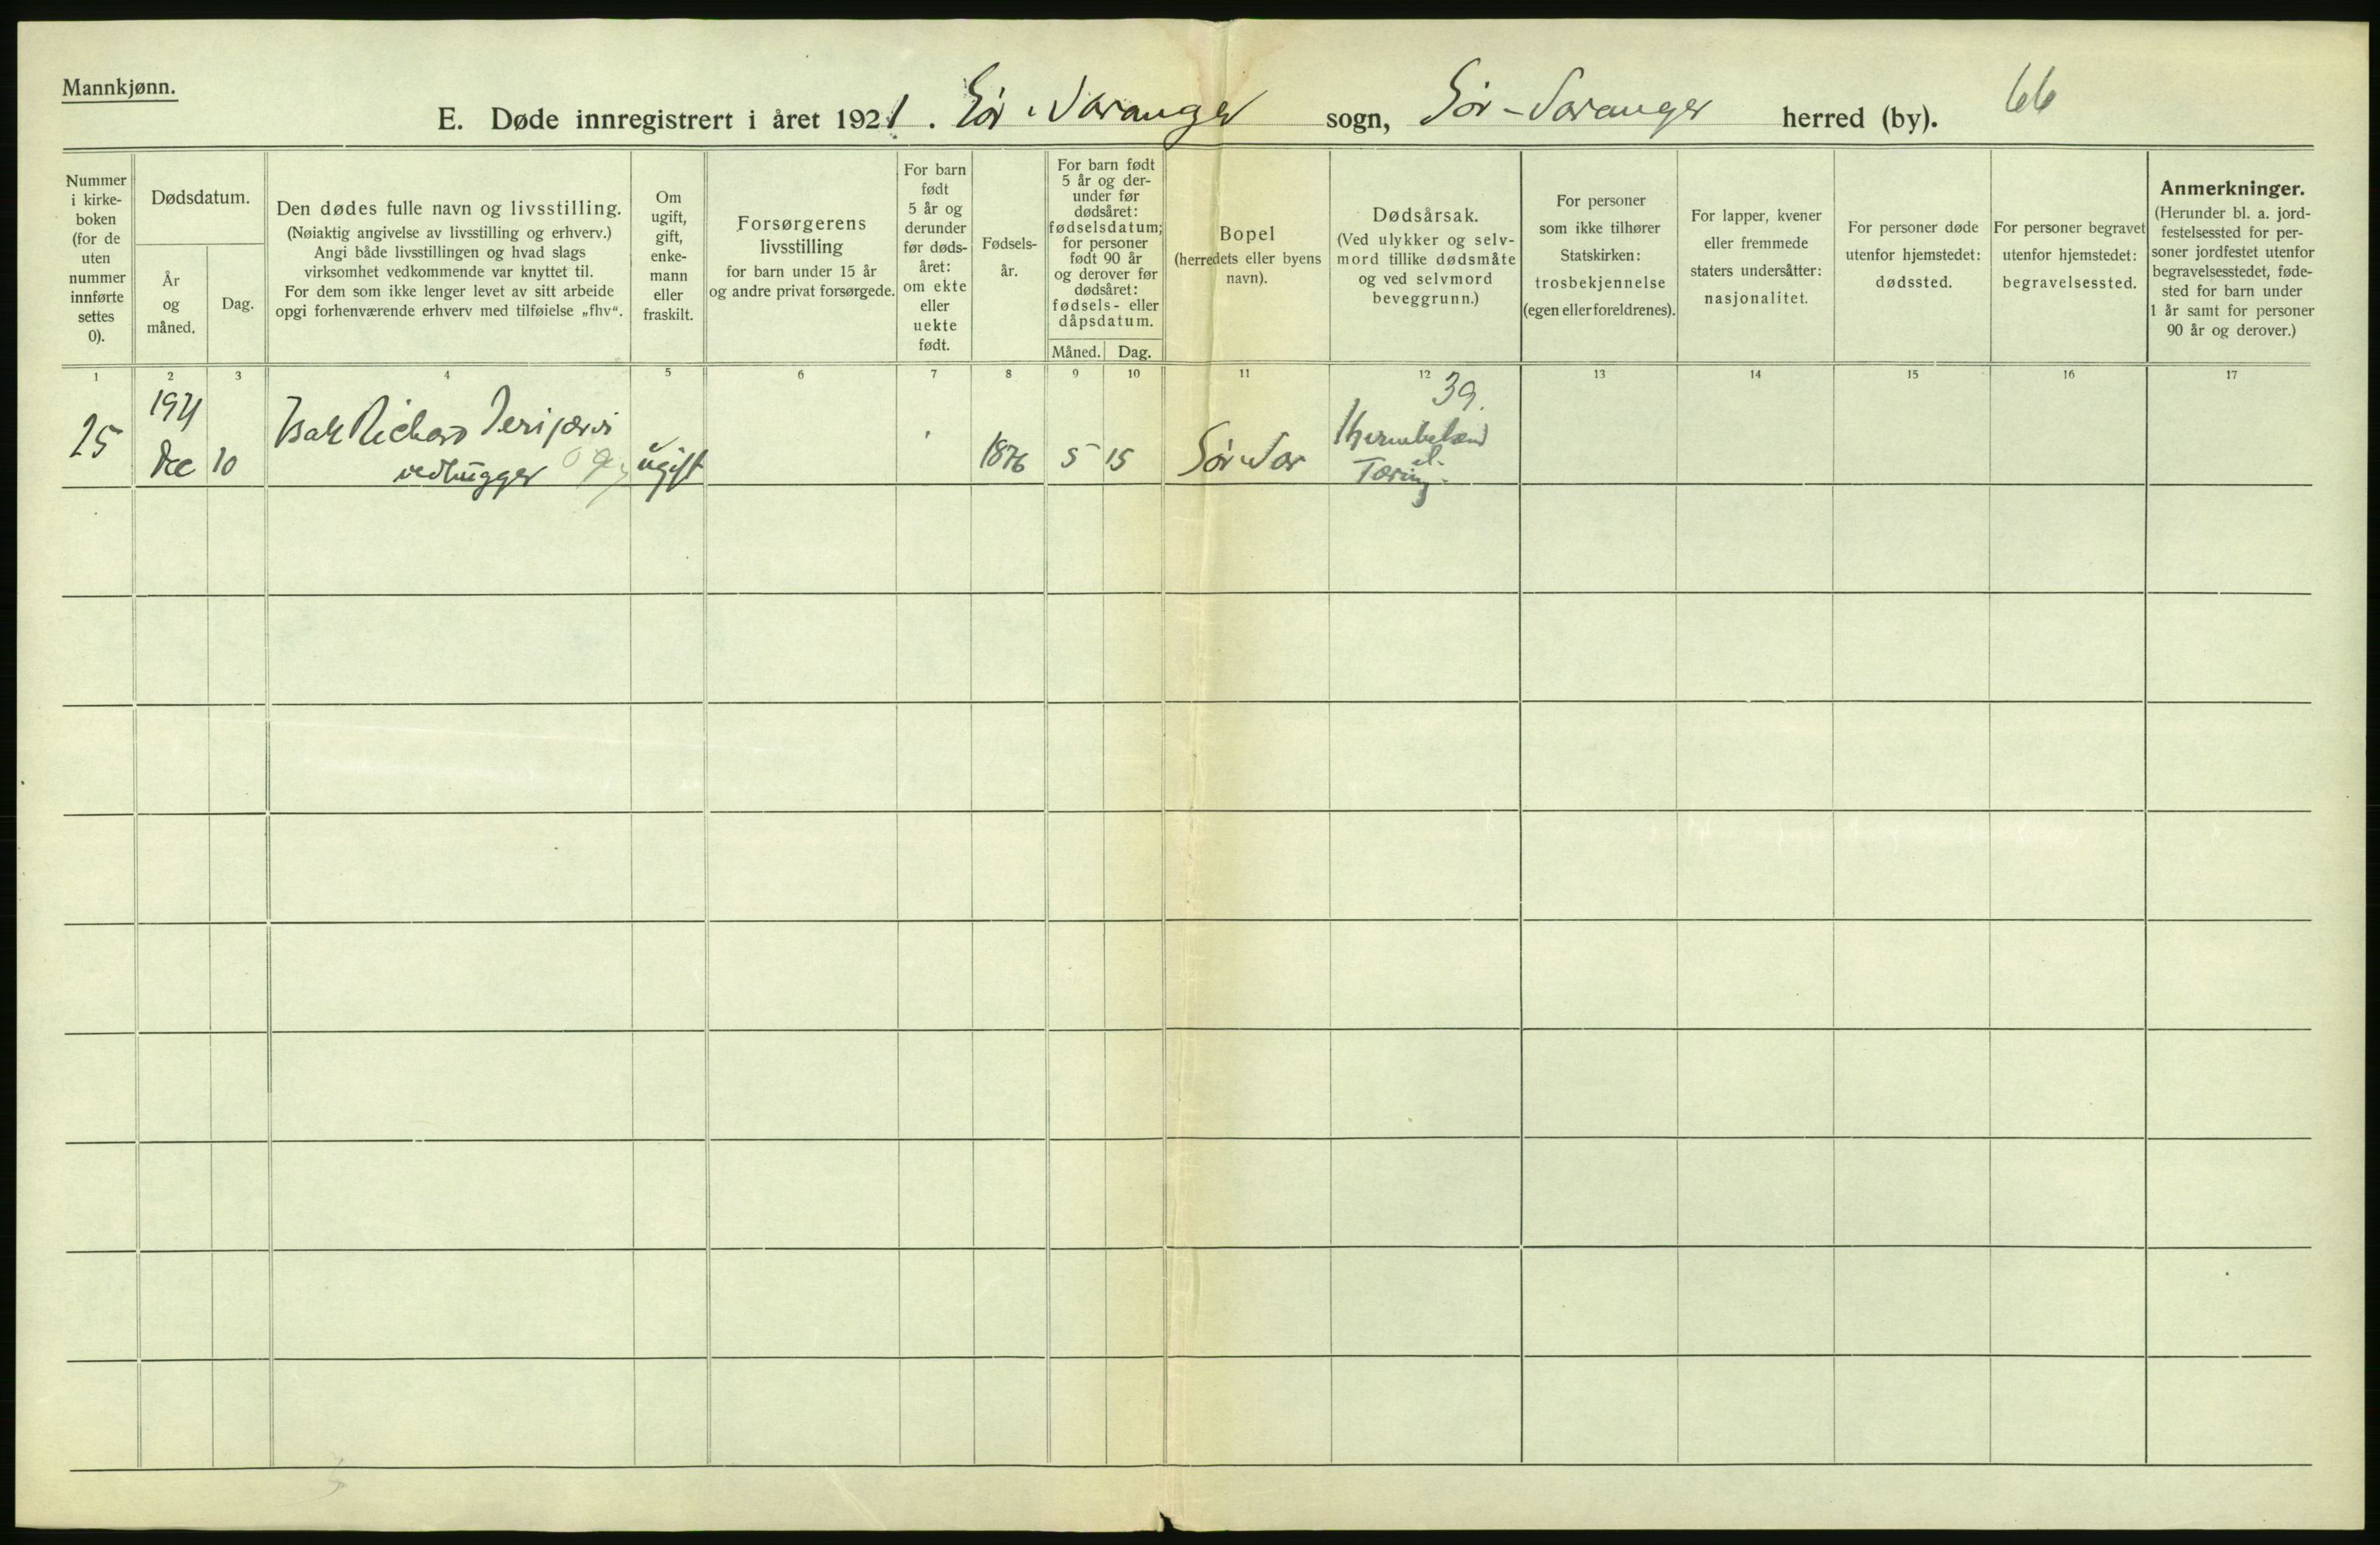 Mannkjønn.
E. Døde innregistrert i året 1921. Sør-Varanger sogn, Sør-Varanger herred (by). 66
Nummer
i kirke-
boken
(for de
uten
nummer
innførte
settes
0).
Dødsdatum.
År
og
måned.
Dag.
Den dødes fulle navn og livsstilling.
(Nøiaktig angivelse av livsstilling og erhverv.)
Angi både livsstillingen og hvad slags
virksomhet vedkommende var knyttet til.
For dem som ikke lenger levet av sitt arbeide
opgi forhenværende erhverv med tilføielse „fhv“.
Om
ugift,
gift,
enke-
mann
eller
fraskilt.
Forsørgerens
livsstilling
for barn under 15 år
og andre privat forsørgede.
For barn
født
5 år og
derunder
før døds-
året:
om ekte
eller
uekte
født.
Fødsels-
år.
For barn født
5 år og der-
under før
dødsåret:
fødselsdatum;
for personer
født 90 år
og derover før
dødsåret:
fødsels- eller
dåpsdatum.
Måned. Dag.
Bopel
(herredets eller byens
navn).
Dødsårsak.
(Ved ulykker og selv-
mord tillike dødsmåte
og ved selvmord
beveggrunn.)
For personer
som ikke tilhører
Statskirken:
trosbekjennelse
(egen eller foreldrenes).
For lapper, kvener
eller fremmede
staters undersåtter:
nasjonalitet.
For personer døde
utenfor hjemstedet:
dødssted.
For personer begravet
utenfor hjemstedet:
begravelsessted.
Anmerkninger.
(Herunder bl. a. jord-
festelsessted for per-
soner jordfestet utenfor
begravelsesstedet, føde-
sted for barn under
1 år samt for personer
90 år og derover.)
1 2 3 4 5 6 7 8 9 10 11 12 13 14 15 16 17
25
1921
Dec 10
Isak Richard
vedhugger
ugift
1876 5 15
Sør-Var
39.
Tæring.